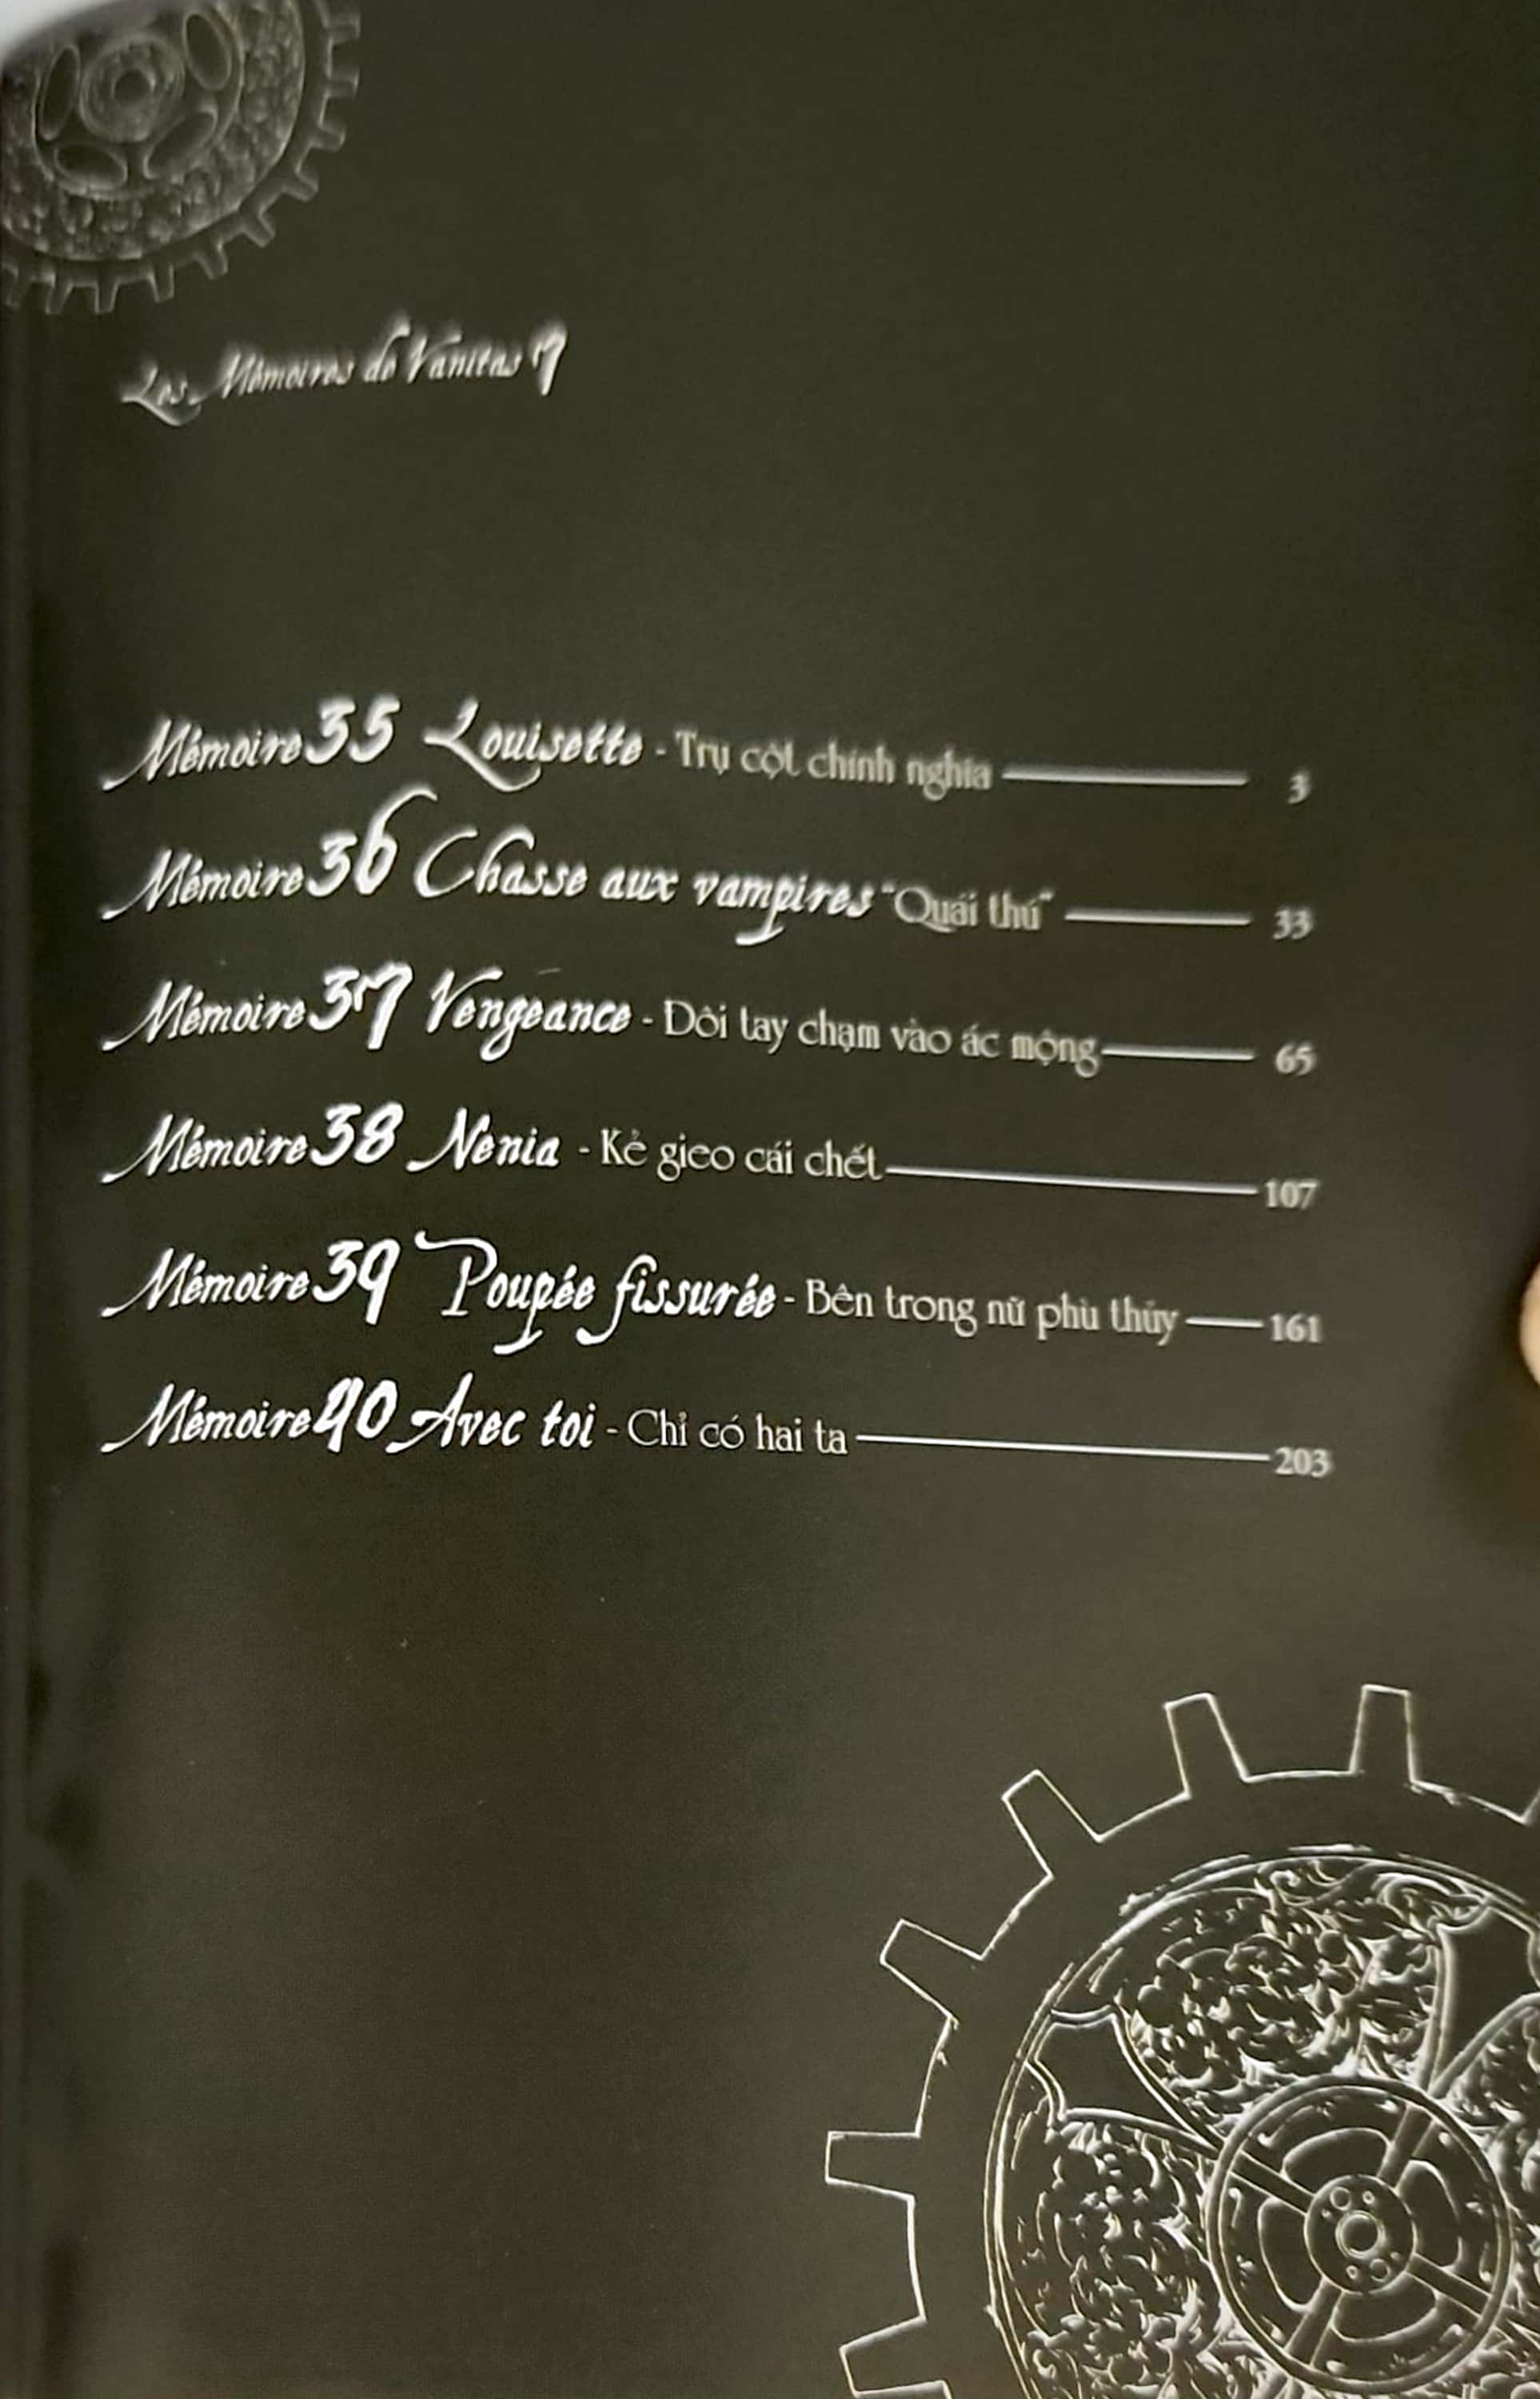 Les Mémoires de Vanitas 7
Mémoire 35 Louisette - Trụ cột chính nghĩa 3
Mémoire 36 Chasse aux vampires "Quái thú" 33
Mémoire 37 Vengeance - Đôi tay chạm vào ác mộng 65
Mémoire 38 Nenia - Kẻ gieo cái chết 107
Mémoire 39 Poupée fissurée - Bên trong nữ phù thủy 161
Mémoire 40 Avec toi - Chỉ có hai ta 203